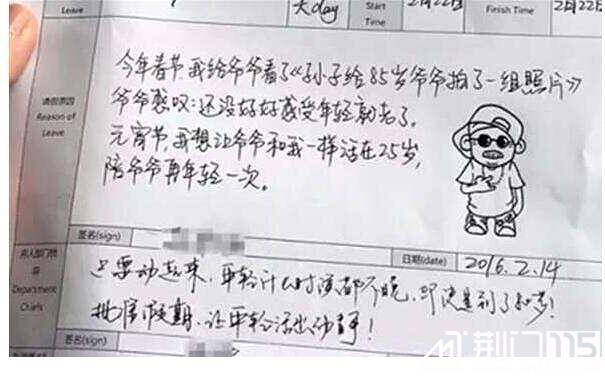 Leave
天day
Start
Time
2月22日
Finish Time
2月22
请假原因
Reason of
Leave
今年春节我给爷爷看了《孙子给85岁爷爷拍了一组照片》
爷爷感叹:还没好好感受年轻就老了。
元宵节,我想让爷爷和我一样活在25岁,
陪爷爷再年轻一次。
签名(sign)
日期(date)
2016.2.14
Department
Chiefs
要动起来,年轻什么时候都不晚,即使是到了
批准假期,让年轻活出动静!
签名(sign)
荆门